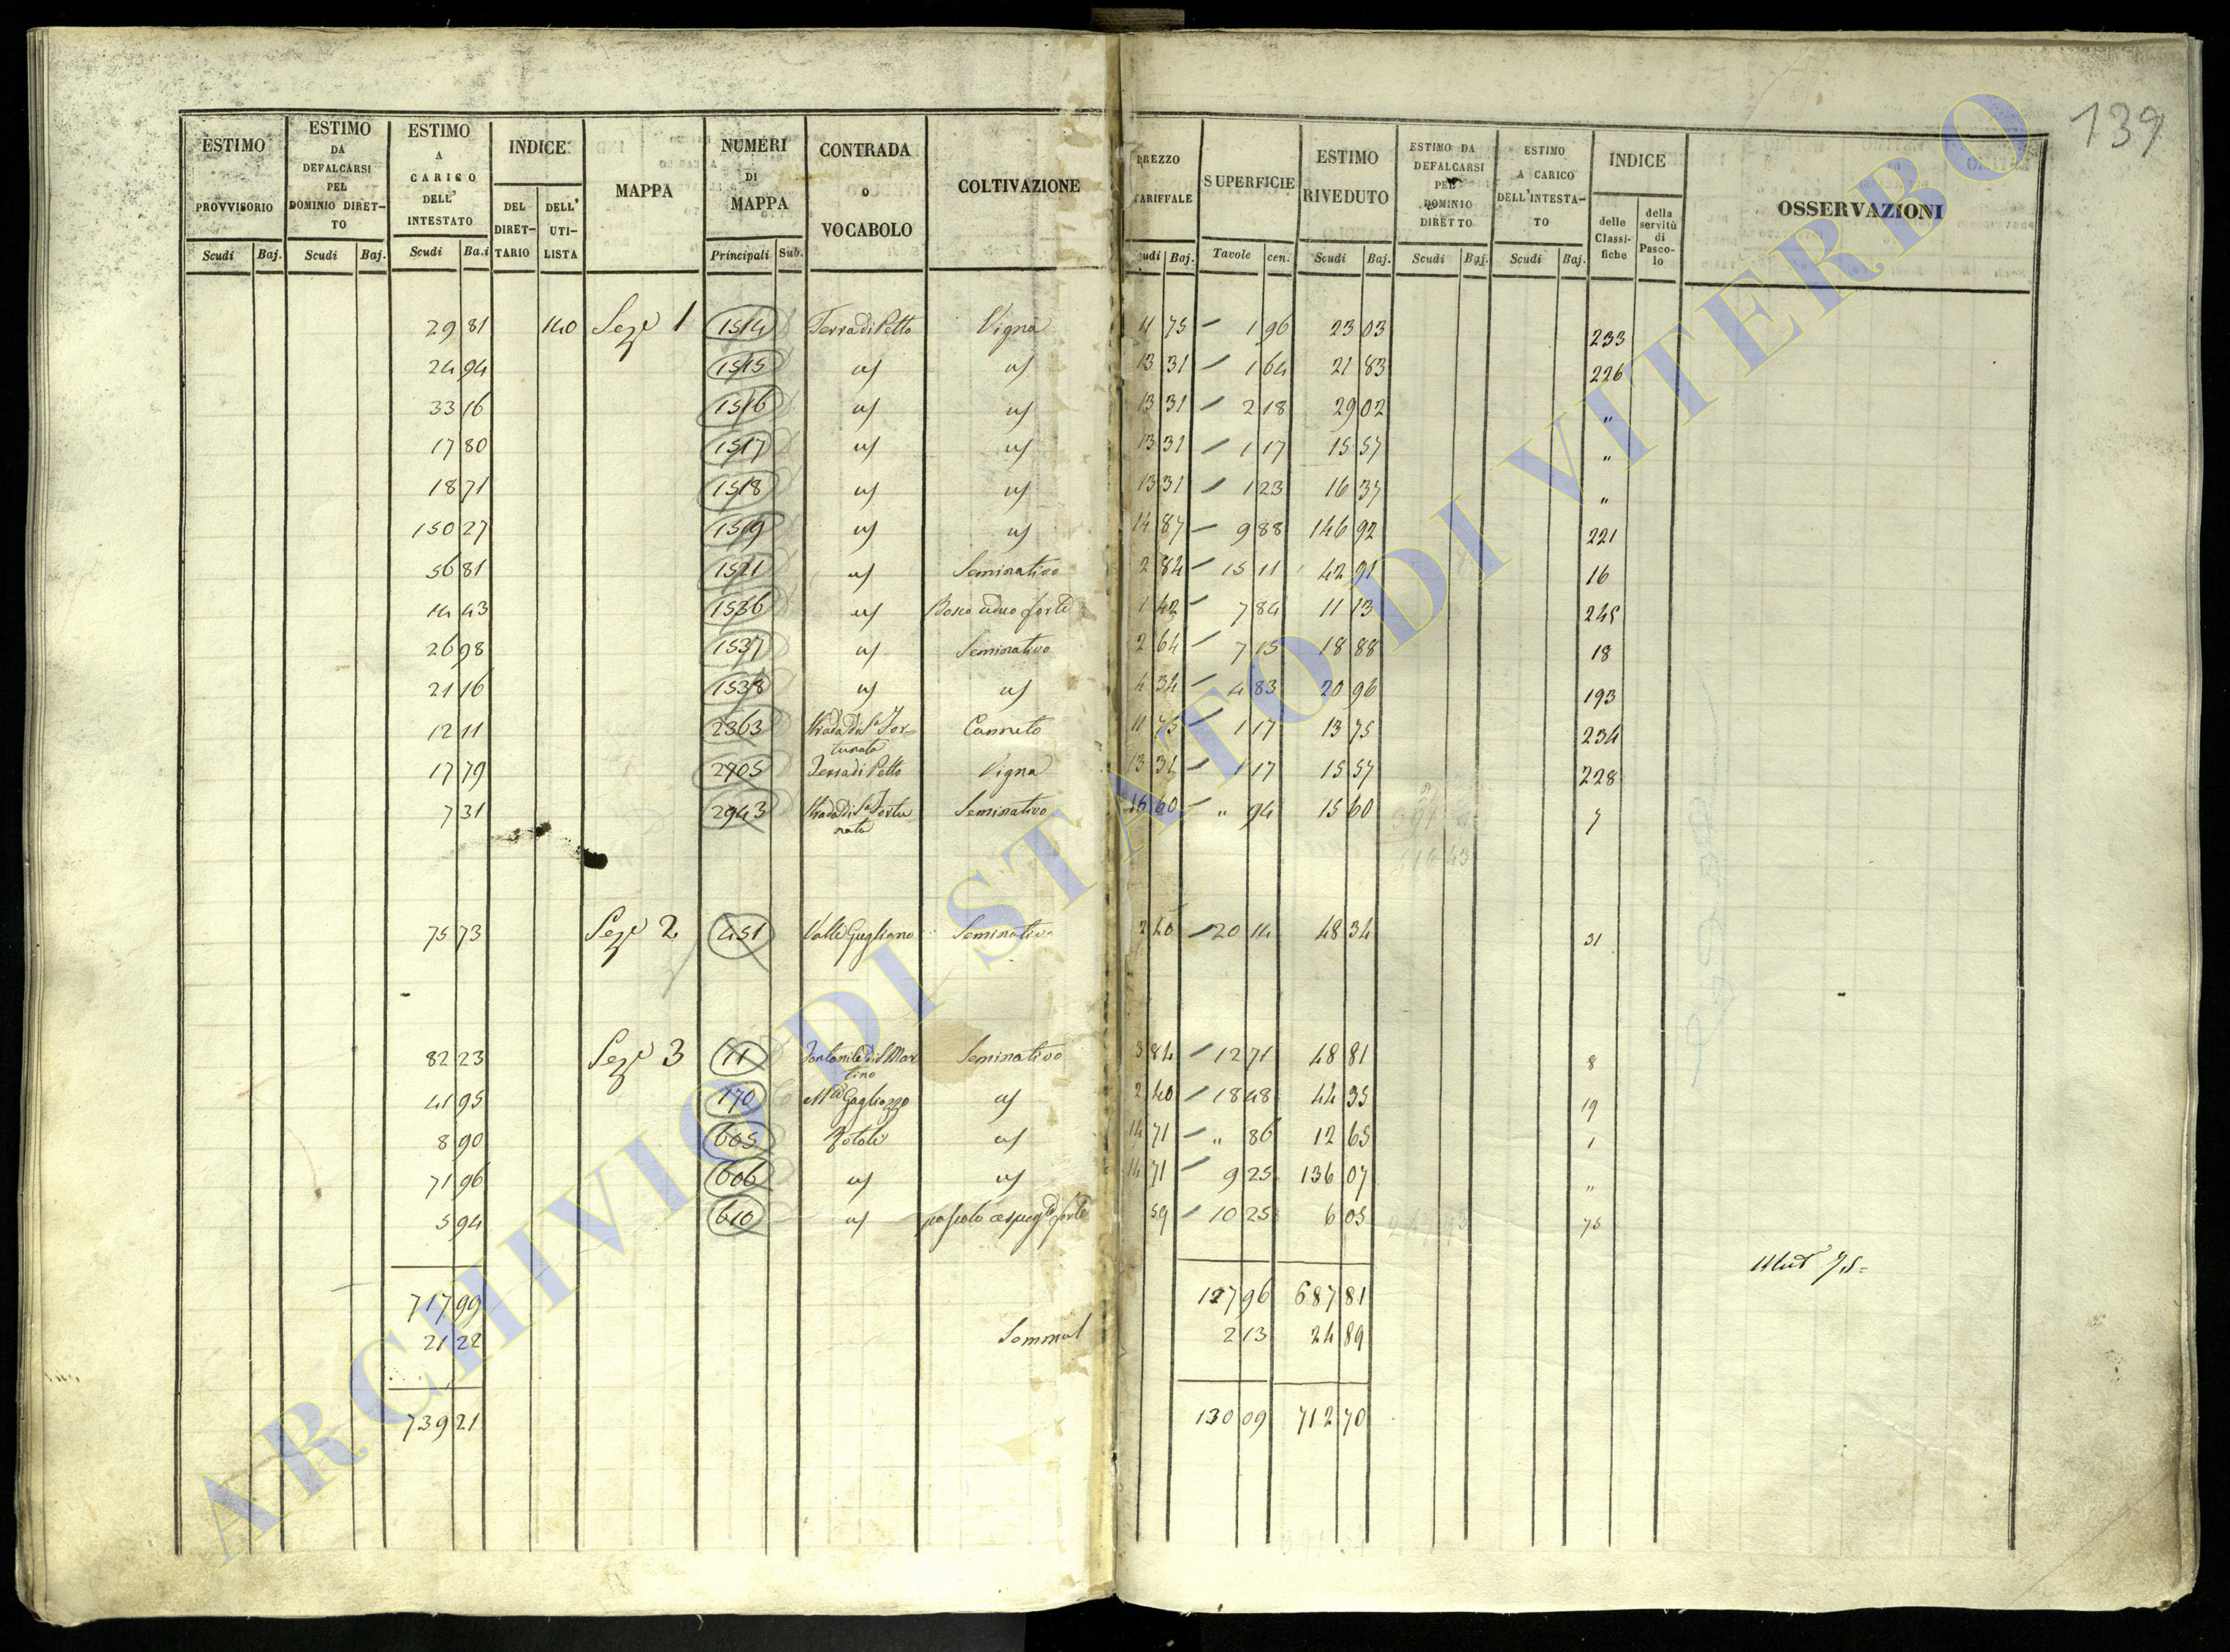 139
ESTIMO PROVVISORIO Scudi Baj.
ESTIMO DA DEFALCARSI PEL DOMINIO DIRETTO Scudi Baj.
ESTIMO A CARICO DELL' INTESTATO Scudi Ba.i
INDICE DEL DIRETTARIO DELL' UTILISTA
MAPPA
NUMERI DI MAPPA Principali Sub.
CONTRADA O VOCABOLO
COLTIVAZIONE
PREZZO TARIFFALE Scudi Baj.
SUPERFICIE Tavole cen.
ESTIMO RIVEDUTO Scudi Baj.
ESTIMO DA DEFALCARSI PEL DOMINIO DIRETTO Scudi Baj.
ESTIMO A CARICO DELL'INTESTATO Scudi Baj.
INDICE delle Classifiche della servitù di Pascolo
OSSERVAZIONI
29 81 140 Seze 1 1514 Terra di Petto Vigna 11 75 1 96 23 03 233
24 94 1515 1 64 21 83 13 31 226
33 16 1516 13 31 2 18 29 02 "
17 80 1517 13 31 1 17 15 57 "
18 71 1518 13 31 1 23 16 37 "
150 27 1519 14 87 9 88 146 92 221
56 81 1521 Seminativo 2 84 15 11 42 91 16
14 43 1536 Bosco ceduo forte 1 42 7 84 11 13 245
26 98 1537 Seminativo 2 64 7 15 18 88 18
21 16 1538 4 34 4 83 20 96 193
12 11 2363 Strada di Sa Fortunata Canneto 11 75 1 17 13 75 234
17 79 2705 Terra di Petto Vigna 13 31 1 17 15 57 228
7 31 2943 Strada di Sa Fortunata Seminativo 16 60 " 94 15 60 7
75 73 Seze 2 451 Valle Gugliano Seminativo 2 40 20 14 48 34 31
82 23 Seze 3 11 Fontanile di S Martino Seminativo 3 84 12 71 48 81 8
41 95 170 Gagliozzo 2 40 18 48 44 35 19
8 90 605 14 71 " 86 12 65 1
71 96 606 14 71 9 25 136 07 "
5 94 610 pascolo forte 59 10 25 6 05 75
717 99 127 96 687 81
21 22 2 13 24 89
739 21 130 09 712 70
ARCHIVIO DI STATO DI VITERBO